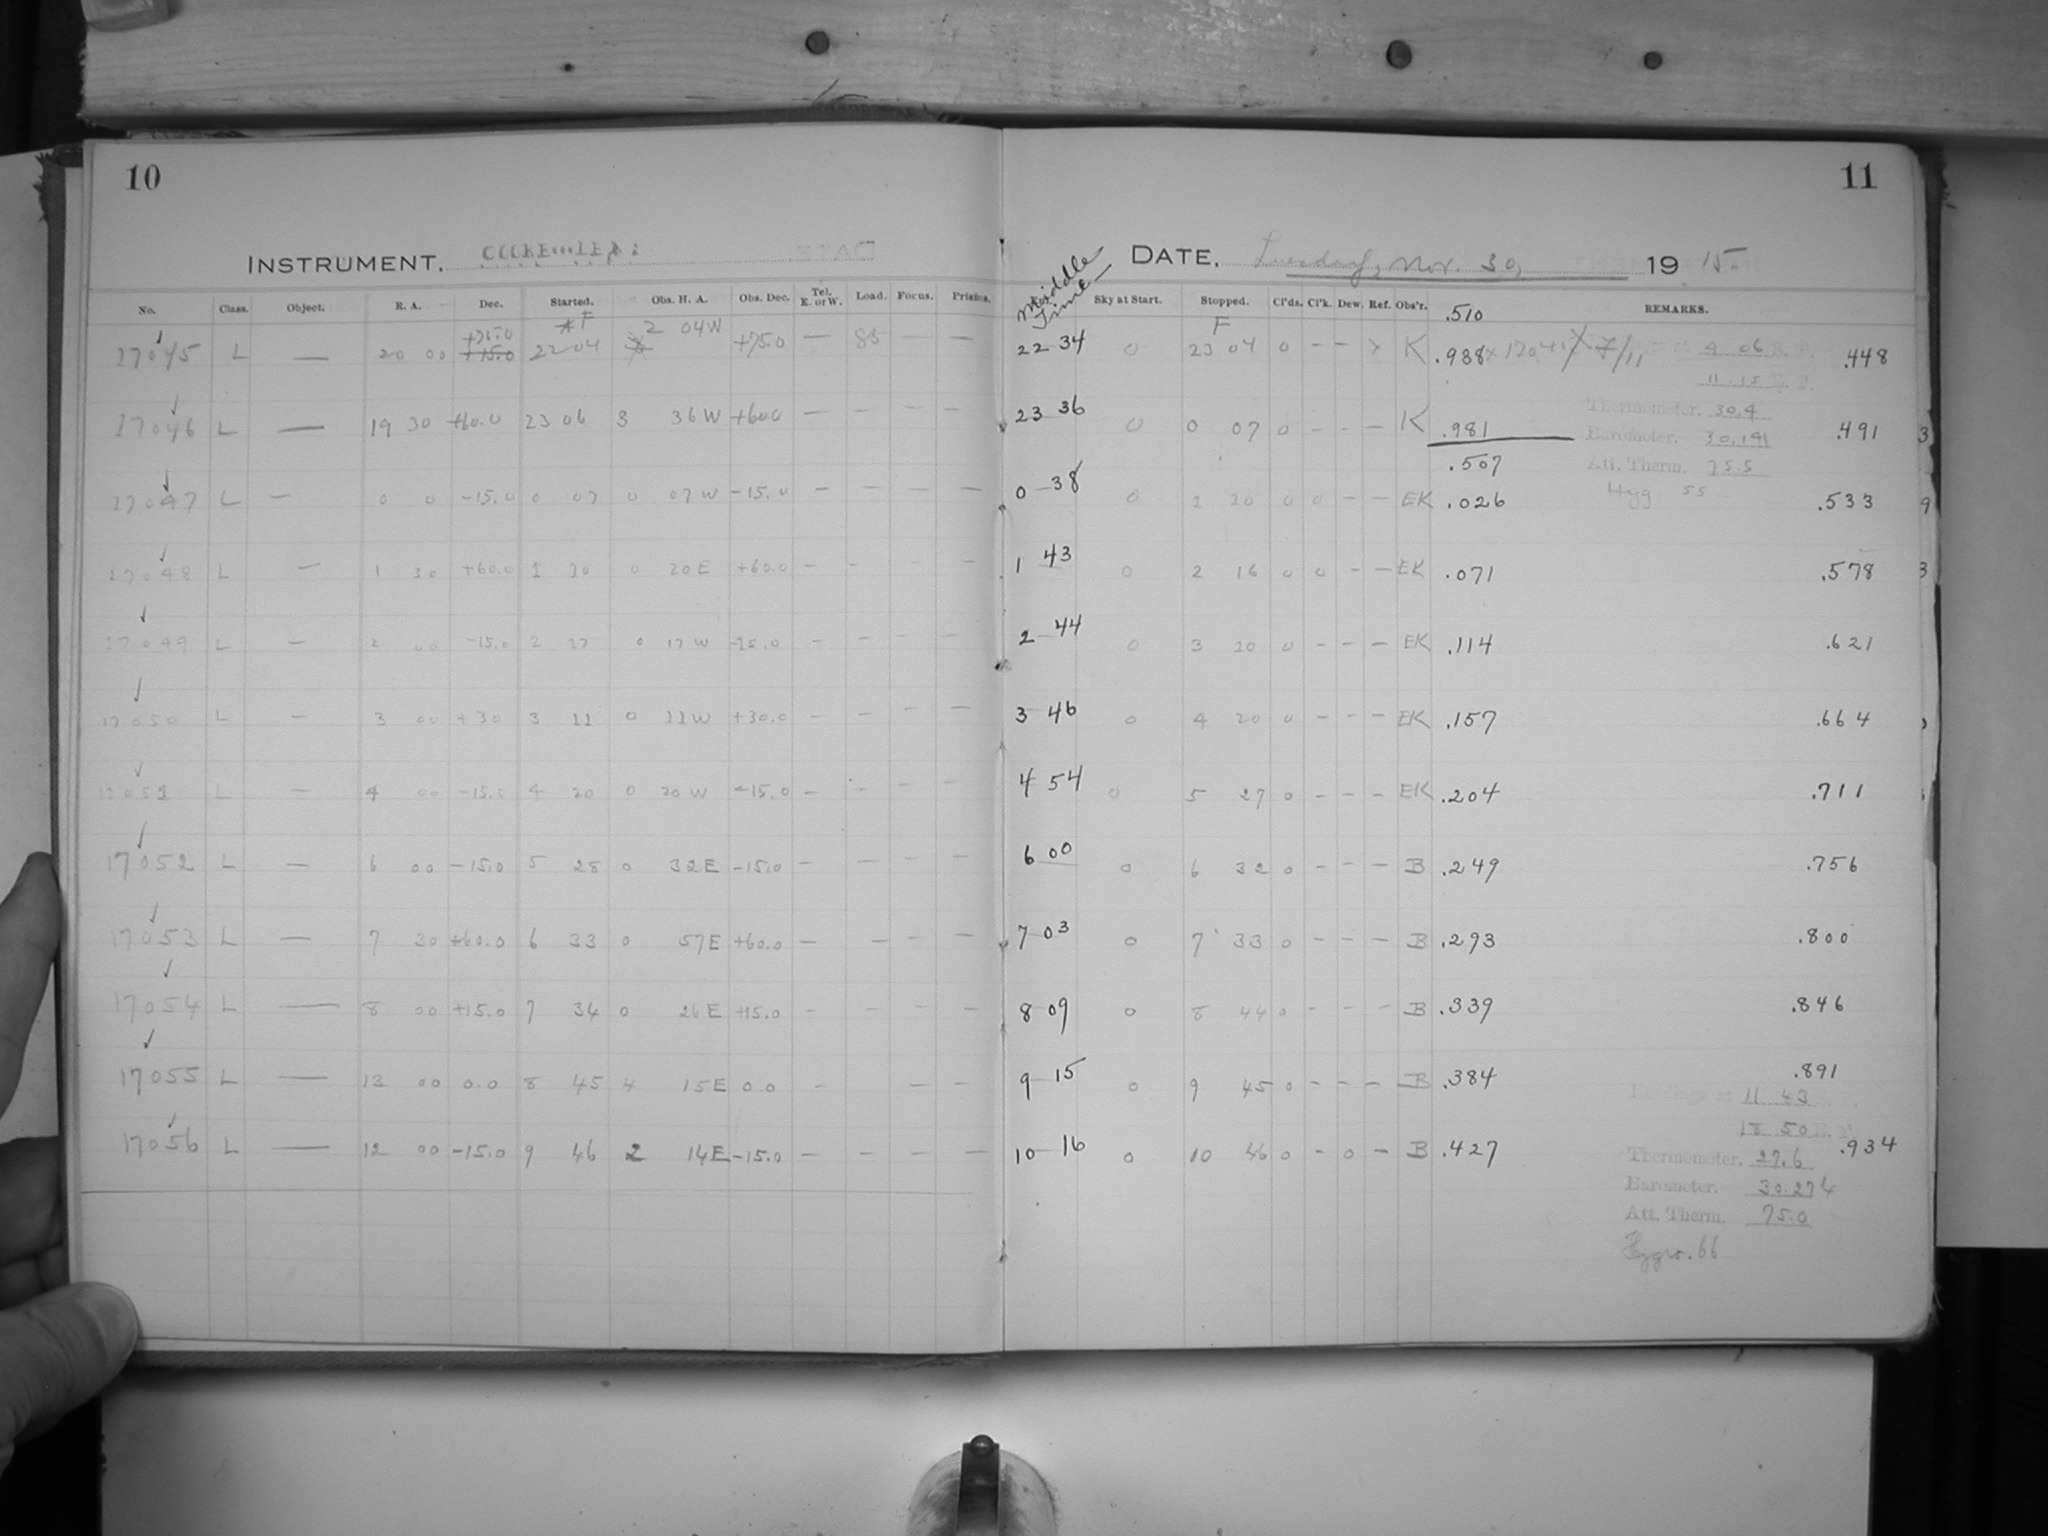 10
INSTRUMENT.
No. Class. Object. R. A. Dec. Started. Obs. H. A. Obs. Dec. Tel. E. or W. Load. Focus. Prisms.
17045 L — 20 00 +75.0 22 04 2 04W +75.0 — 85 — —
17046 L — 19 30 +60.0 23 06 3 36W +60.0 — — — —
17047 L — 0 0 -15.0 0 07 0 07W -15.0 — — — —
17048 L — 1 30 +60.0 1 10 0 20E +60.0 — — — —
17049 L — 2 00 -15.0 2 17 0 17W -15.0 — — — —
17050 L — 3 00 +30 3 11 0 11W +30.0 — — — —
17051 L — 4 00 -15.0 4 20 0 20W -15.0 — — — —
17052 L — 6 00 -15.0 5 28 0 32E -15.0 — — — —
17053 L — 7 30 +60.0 6 33 0 57E +60.0 — — — —
17054 L — 8 00 +15.0 7 34 0 26E +15.0 — — — —
17055 L — 13 00 0.0 8 45 4 15E 0.0 — — —
17056 L — 12 00 -15.0 9 46 2 14E -15.0 — — — —
11
DATE. Tuesday, Nov. 30, 1915.
Middle Time— Sky at Start. Stopped. Cl'ds. Cl'k. Dew. Ref. Obs'r. REMARKS.
.510
22 34 0 F 23 04 0 - - K .938 .448
23 36 0 0 07 0 - - - K .981 .491
.507
0 38 0 1 10 0 0 - - EK .026 .533
1 43 0 2 16 0 0 - - EK .071 .578
2 44 0 3 10 0 - - - EK .114 .621
3 46 0 4 20 0 - - - EK .157 .664
4 54 0 5 27 0 - - - EK .204 .711
6 00 0 6 32 0 - - - B .249 .756
7 03 0 7 33 0 - - - B .293 .800
8 09 0 8 44 0 - - - B .339 .846
9 15 0 9 45 0 - - - B .384 .891
10 16 0 10 46 0 - 0 - B .427 .934
9 06
11 15
Thermometer. 30.4
Barometer. 30.191
Att. Therm. 75.5
Hyg. 55
Readings at 11 43
18 50
Thermometer. 27.6
Barometer. 30.274
Att. Therm. 75.0
Hygro. 66